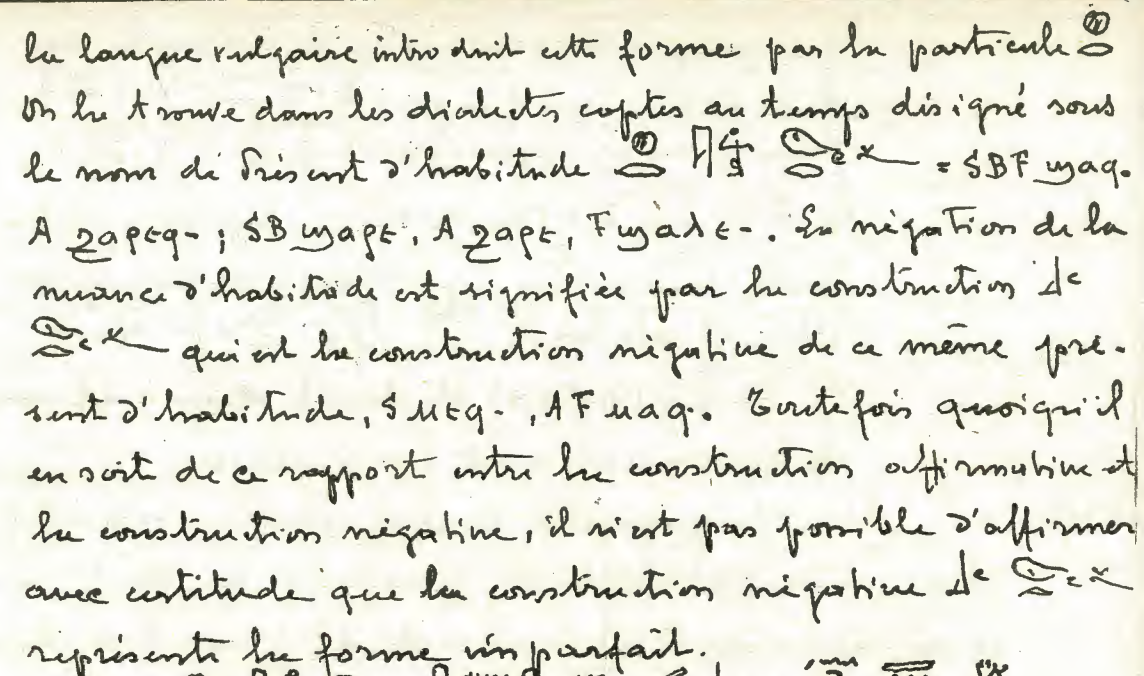 la langue vulgaire introduit cette forme par la particule 𓐍𓂋
On la trouve dans les dialectes coptes au temps désigné sous
le nom de Présent d'habitude 𓐍𓂋 𓁹𓂋𓆑 = SBF ϣⲁϥ-
A ϩⲁⲣⲉϥ-; SB ϣⲁⲣⲉ, A ϩⲁⲣⲉ, F ϣⲁⲗⲉ-. La négation de la
nuance d'habitude est signifiée par la construction
𓁹𓂋𓆑 qui est la construction négative de ce même pré-
sent d'habitude, S ⲙⲉϥ-, AF ⲙⲁϥ. Toutefois quoiqu'il
en soit de ce rapport entre la construction affirmative et
la construction négative, il n'est pas possible d'affirmer
avec certitude que la construction négative 𓁹𓂋𓆑
représente la forme imparfait.